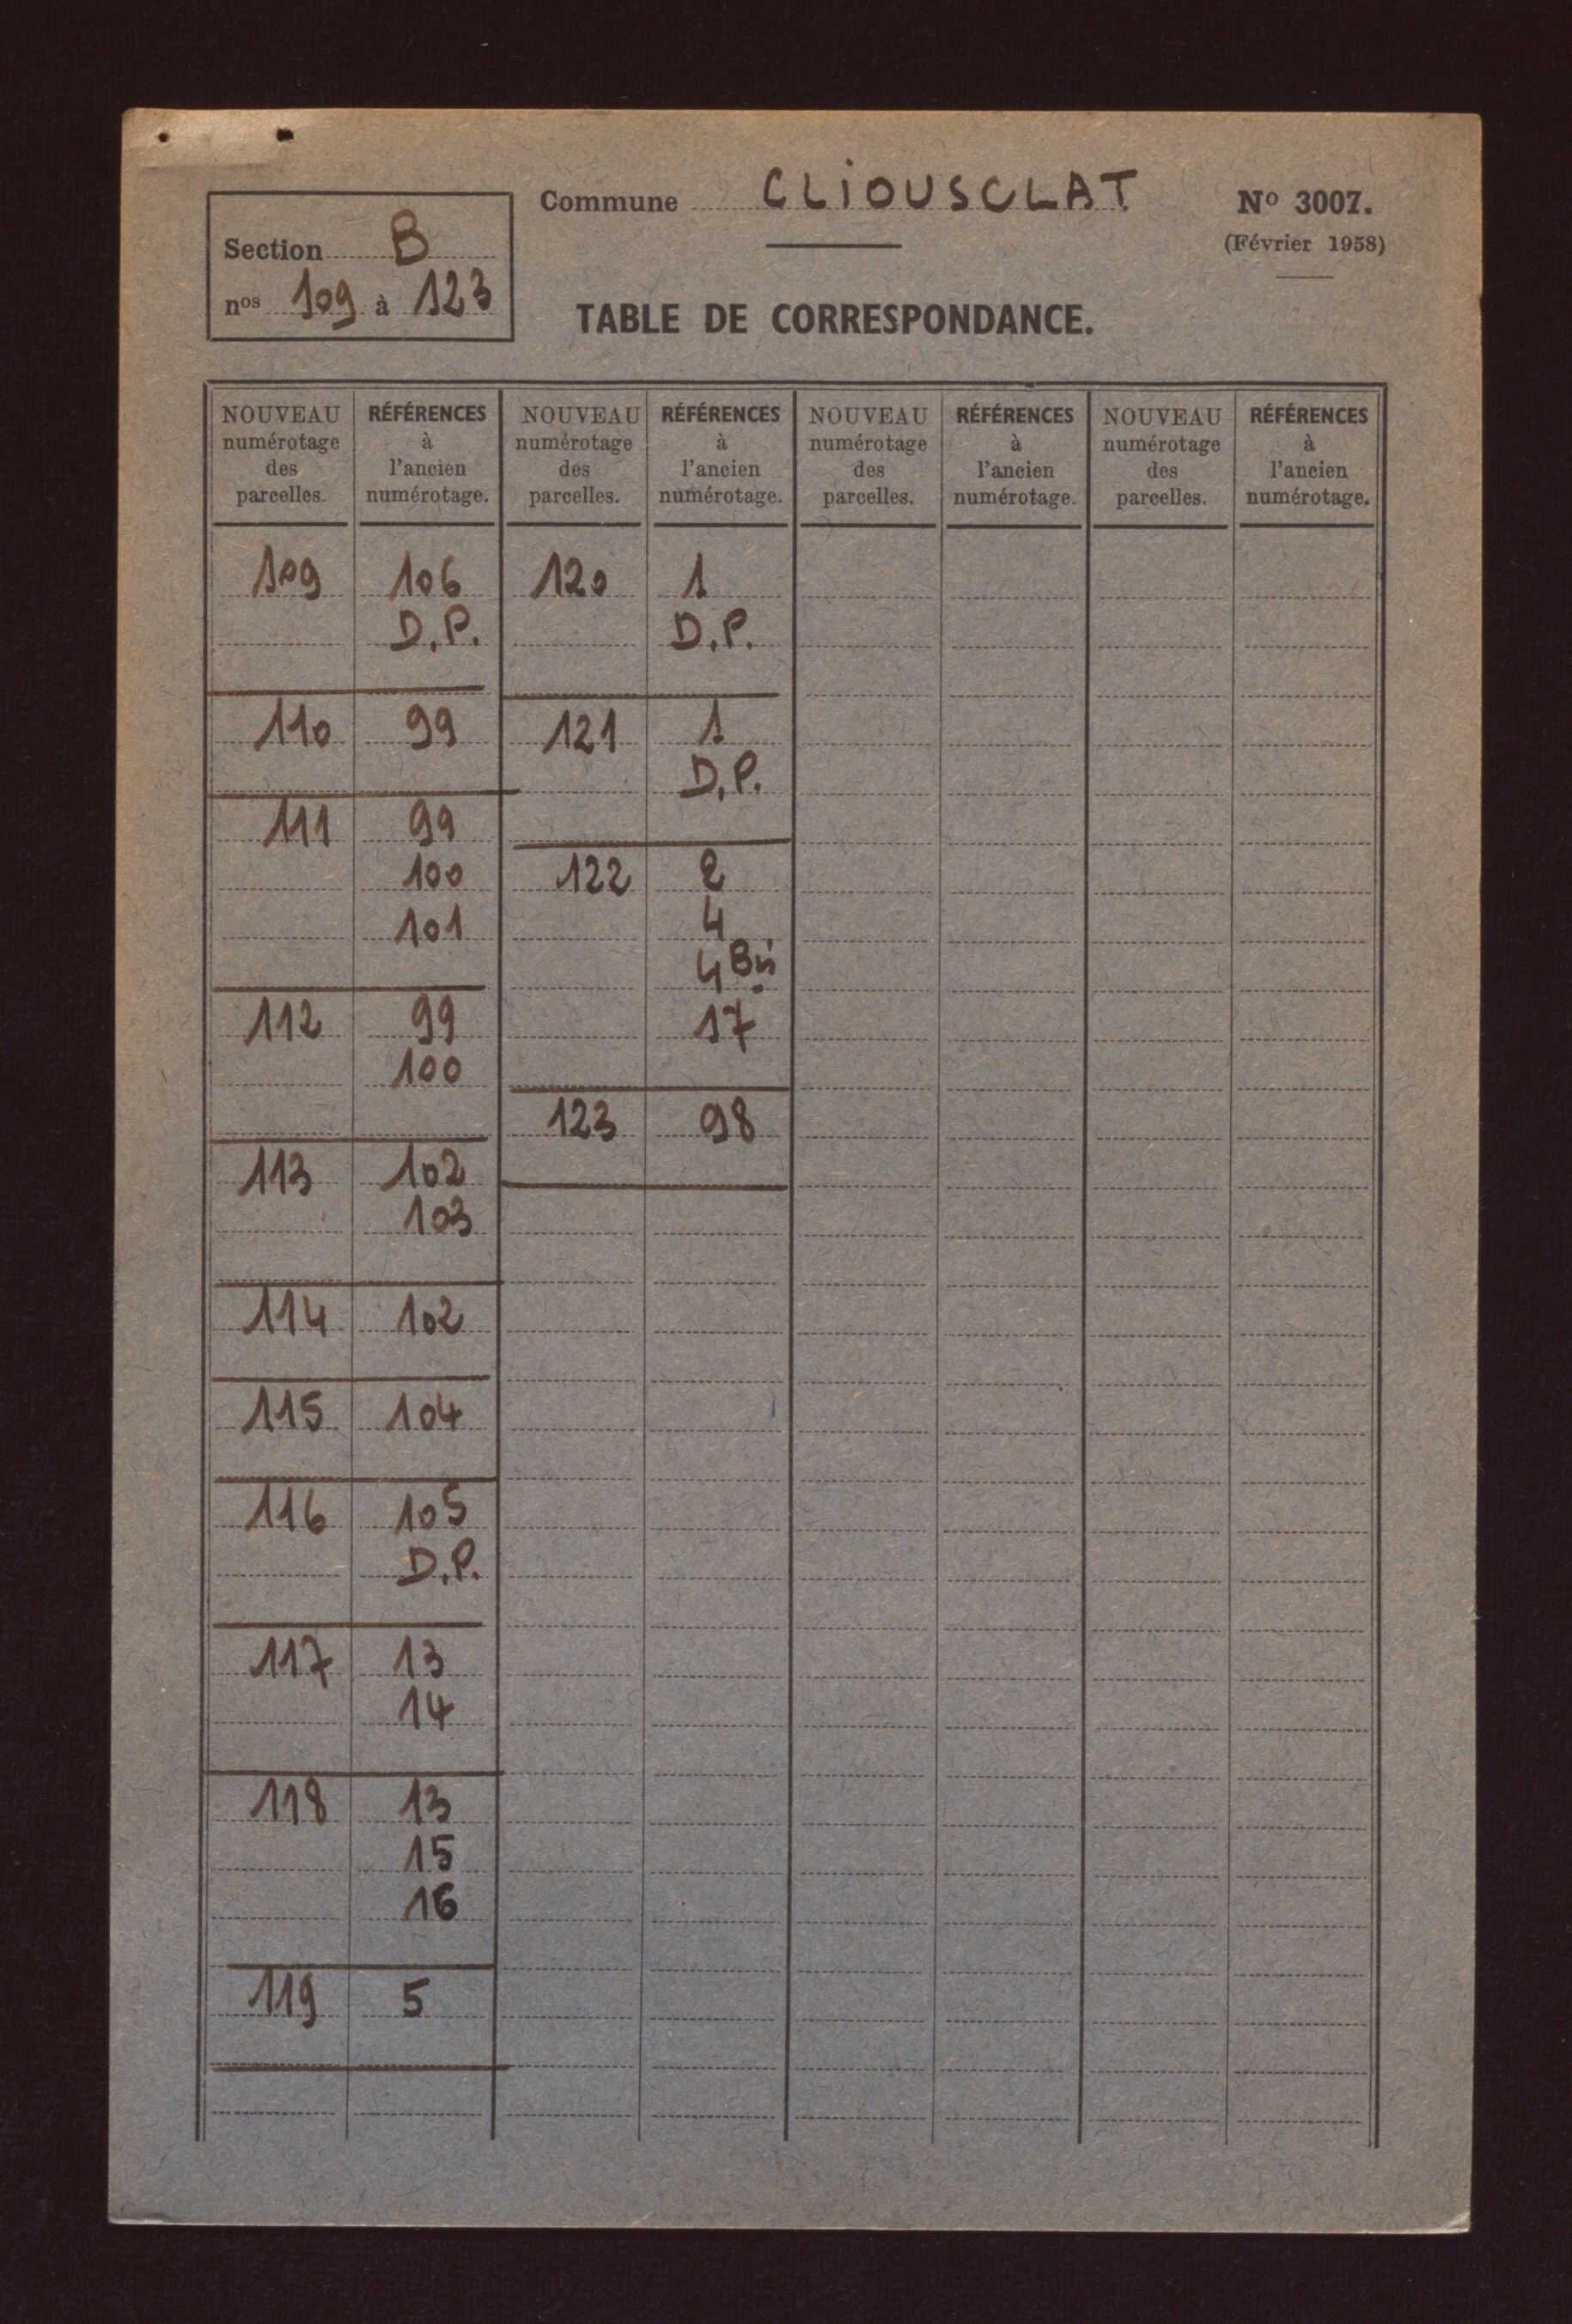 Commune CLIOUSCLAT
Nº 3007.
(Février 1958)
Section B
nos 109 à 123
TABLE DE CORRESPONDANCE.
NOUVEAU numérotage des parcelles. RÉFÉRENCES à l'ancien numérotage. NOUVEAU numérotage des parcelles. RÉFÉRENCES à l'ancien numérotage. NOUVEAU numérotage des parcelles. RÉFÉRENCES à l'ancien numérotage. NOUVEAU numérotage des parcelles. RÉFÉRENCES à l'ancien numérotage.
109 106
D.P.
110 99
111 99
100
101
112 99
100
113 102
103
114 102
115 104
116 105
D.P.
117 13
14
118 13
15
16
119 5
120 1
D.P.
121 1
D.P.
122 2
4
4 Bis
17
123 98